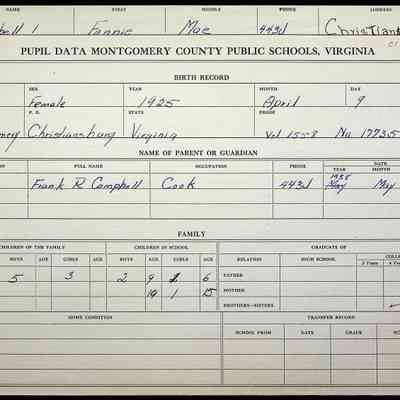 NAME FIRST MIDDLE PHONE ADDRESS
bell Fannie Mae 443J Christians
PUPIL DATA MONTGOMERY COUNTY PUBLIC SCHOOLS, VIRGINIA
BIRTH RECORD
SEX YEAR MONTH DAY
Female 1925 April 9
P. O. STATE PROOF
mery Christiansburg Virginia Vol 1558 No. 17735
NAME OF PARENT OR GUARDIAN
FULL NAME OCCUPATION PHONE DATE
YEAR MONTH
Frank R Campbell Cook 443J May May
FAMILY
CHILDREN OF THE FAMILY CHILDREN IN SCHOOL GRADUATE OF
BOYS AGE GIRLS AGE BOYS AGE GIRLS AGE RELATION HIGH SCHOOL COLL
2 Years 4 Yea
5 3 2 9 6 FATHER
1 15 MOTHER
BROTHERS—SISTERS
HOME CONDITION TRANSFER RECORD
SCHOOL FROM DATE GRADE